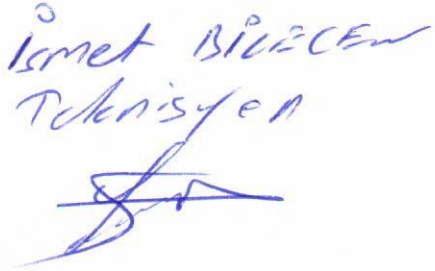 İsmet BİLECEN
Teknisyen